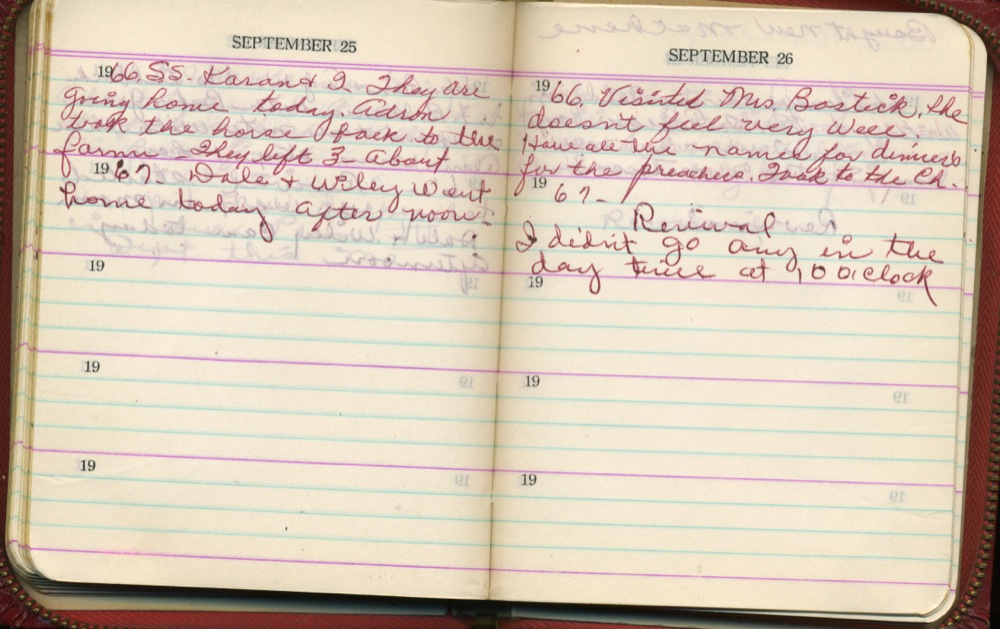 SEPTEMBER 25
1966. SS. Karan & I They are
going home today. Adron
took the horse back to the
farm - They left 3 - about
1967. - Dale & Wiley went
home today after noon.
19
19
19
SEPTEMBER 26
1966. Visited Mrs. Bostick, She
doesn't feel very well.
Have all the names for dinners
for the preachers. Took to the Ch.
19
67 -
Revival
I didn't go any in the
day time at 10 O,Clock
19
19
19